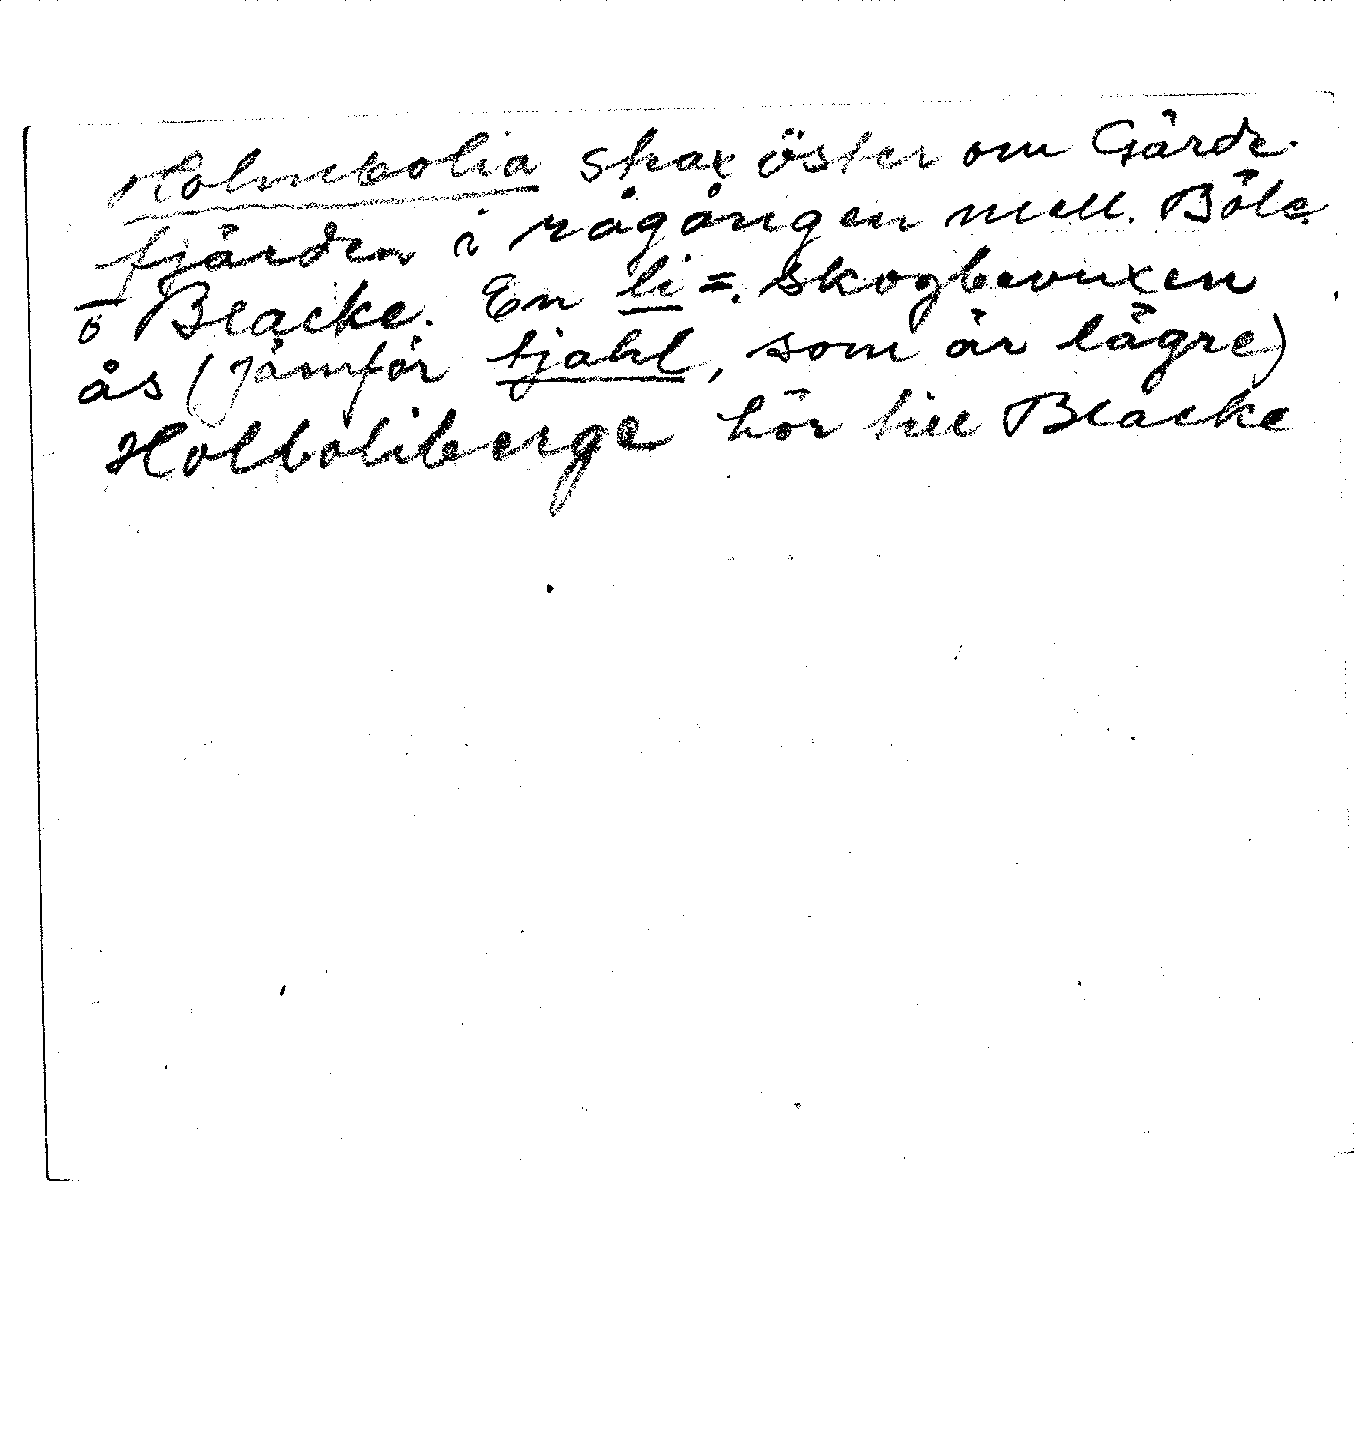 Holmbolia strax öster om Gärde-
fjärden i rågången mell. Böle
ö Blacke. En li = skogbevuxen
ås (jämför tjahl, som är lägre)
Holboliberge hör till Blacke